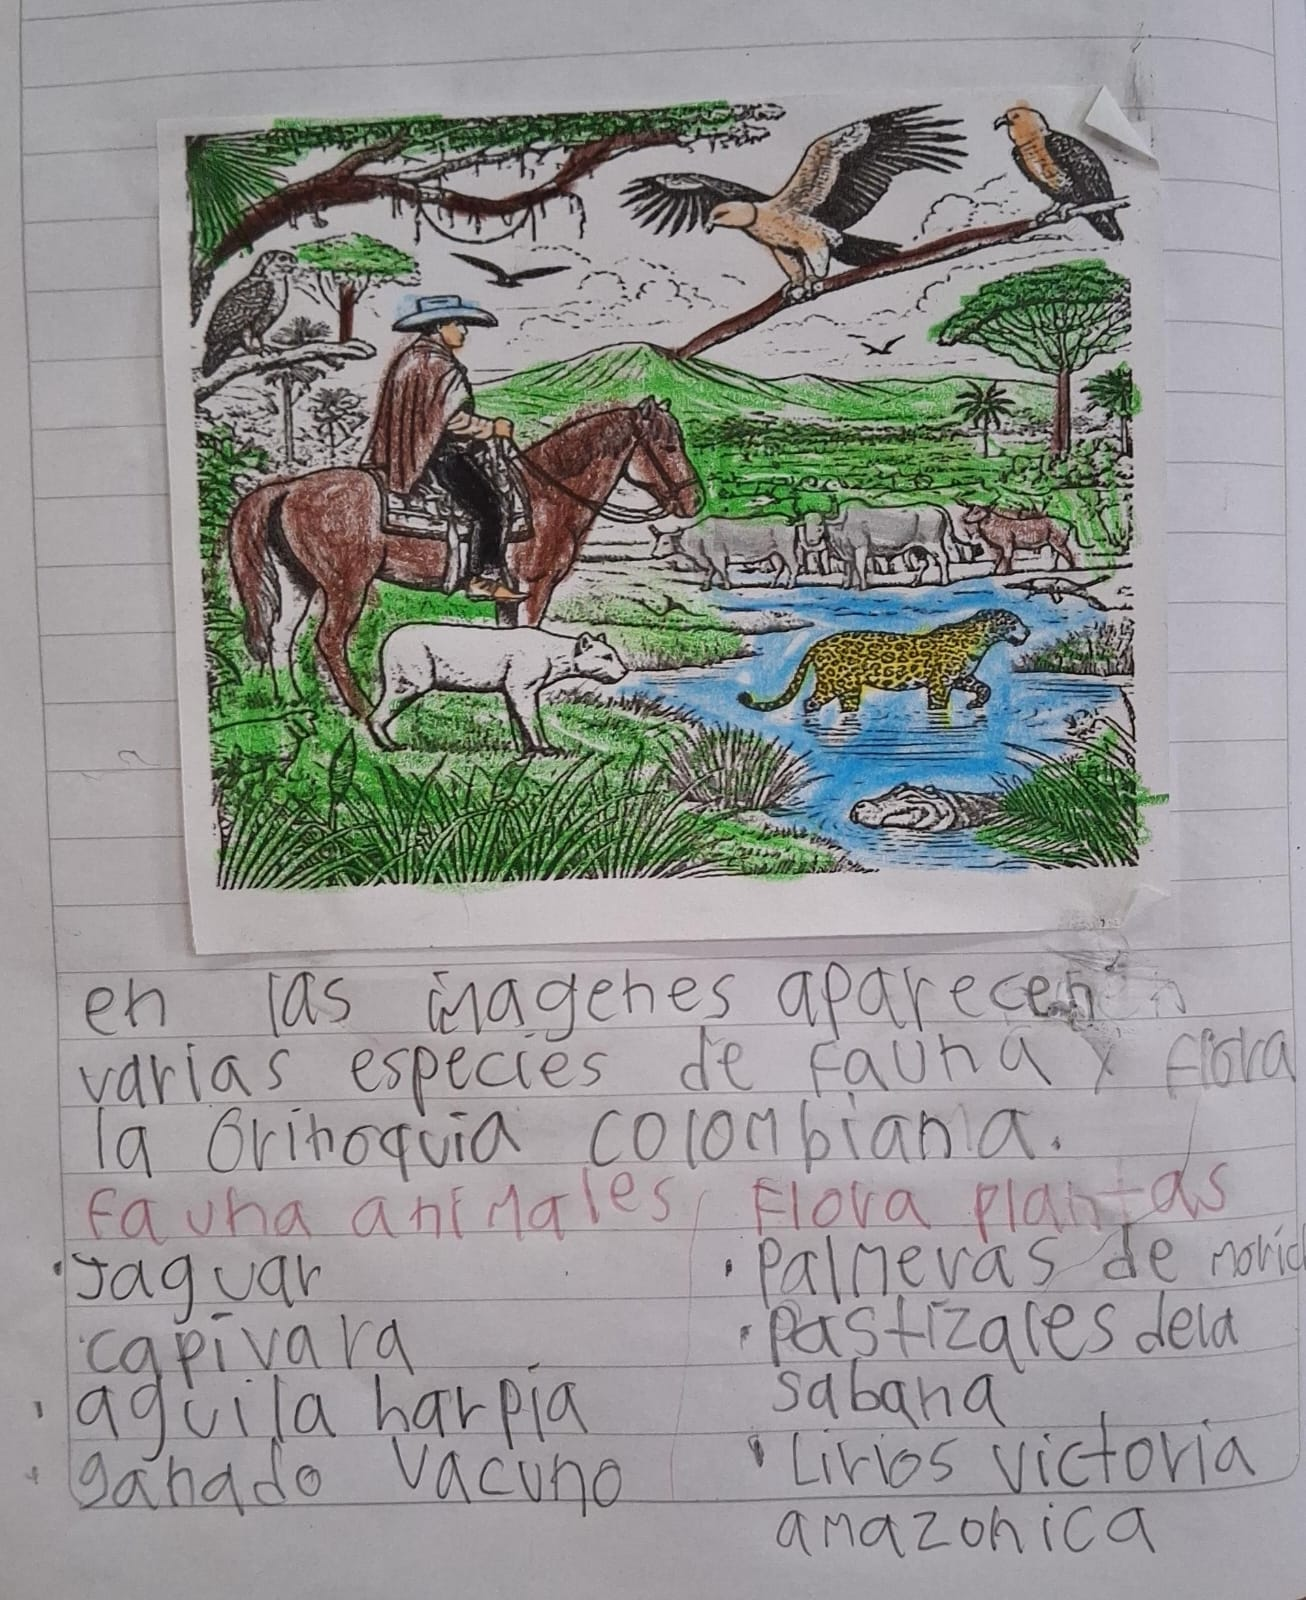 en las imagenes aparecen
varias especies de fauna y flora
la Orinoquia colombiana.
Fauna animales
Flora plantas
• Jaguar
• capivara
• aguila harpia
• ganado vacuno
• Palmeras de moric
• Pastizales dela
sabana
• Lirios victoria
amazonica